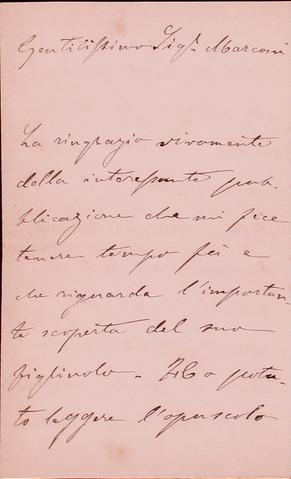 Gentilissimo Sigr. Marconi
La ringrazio vivamente
della interessante pub-
blicazione che mi fece
tenere tempo fà e
che riguarda l'importan-
te scoperta del suo
figliuolo. Ho potu-
to leggere l'opuscolo